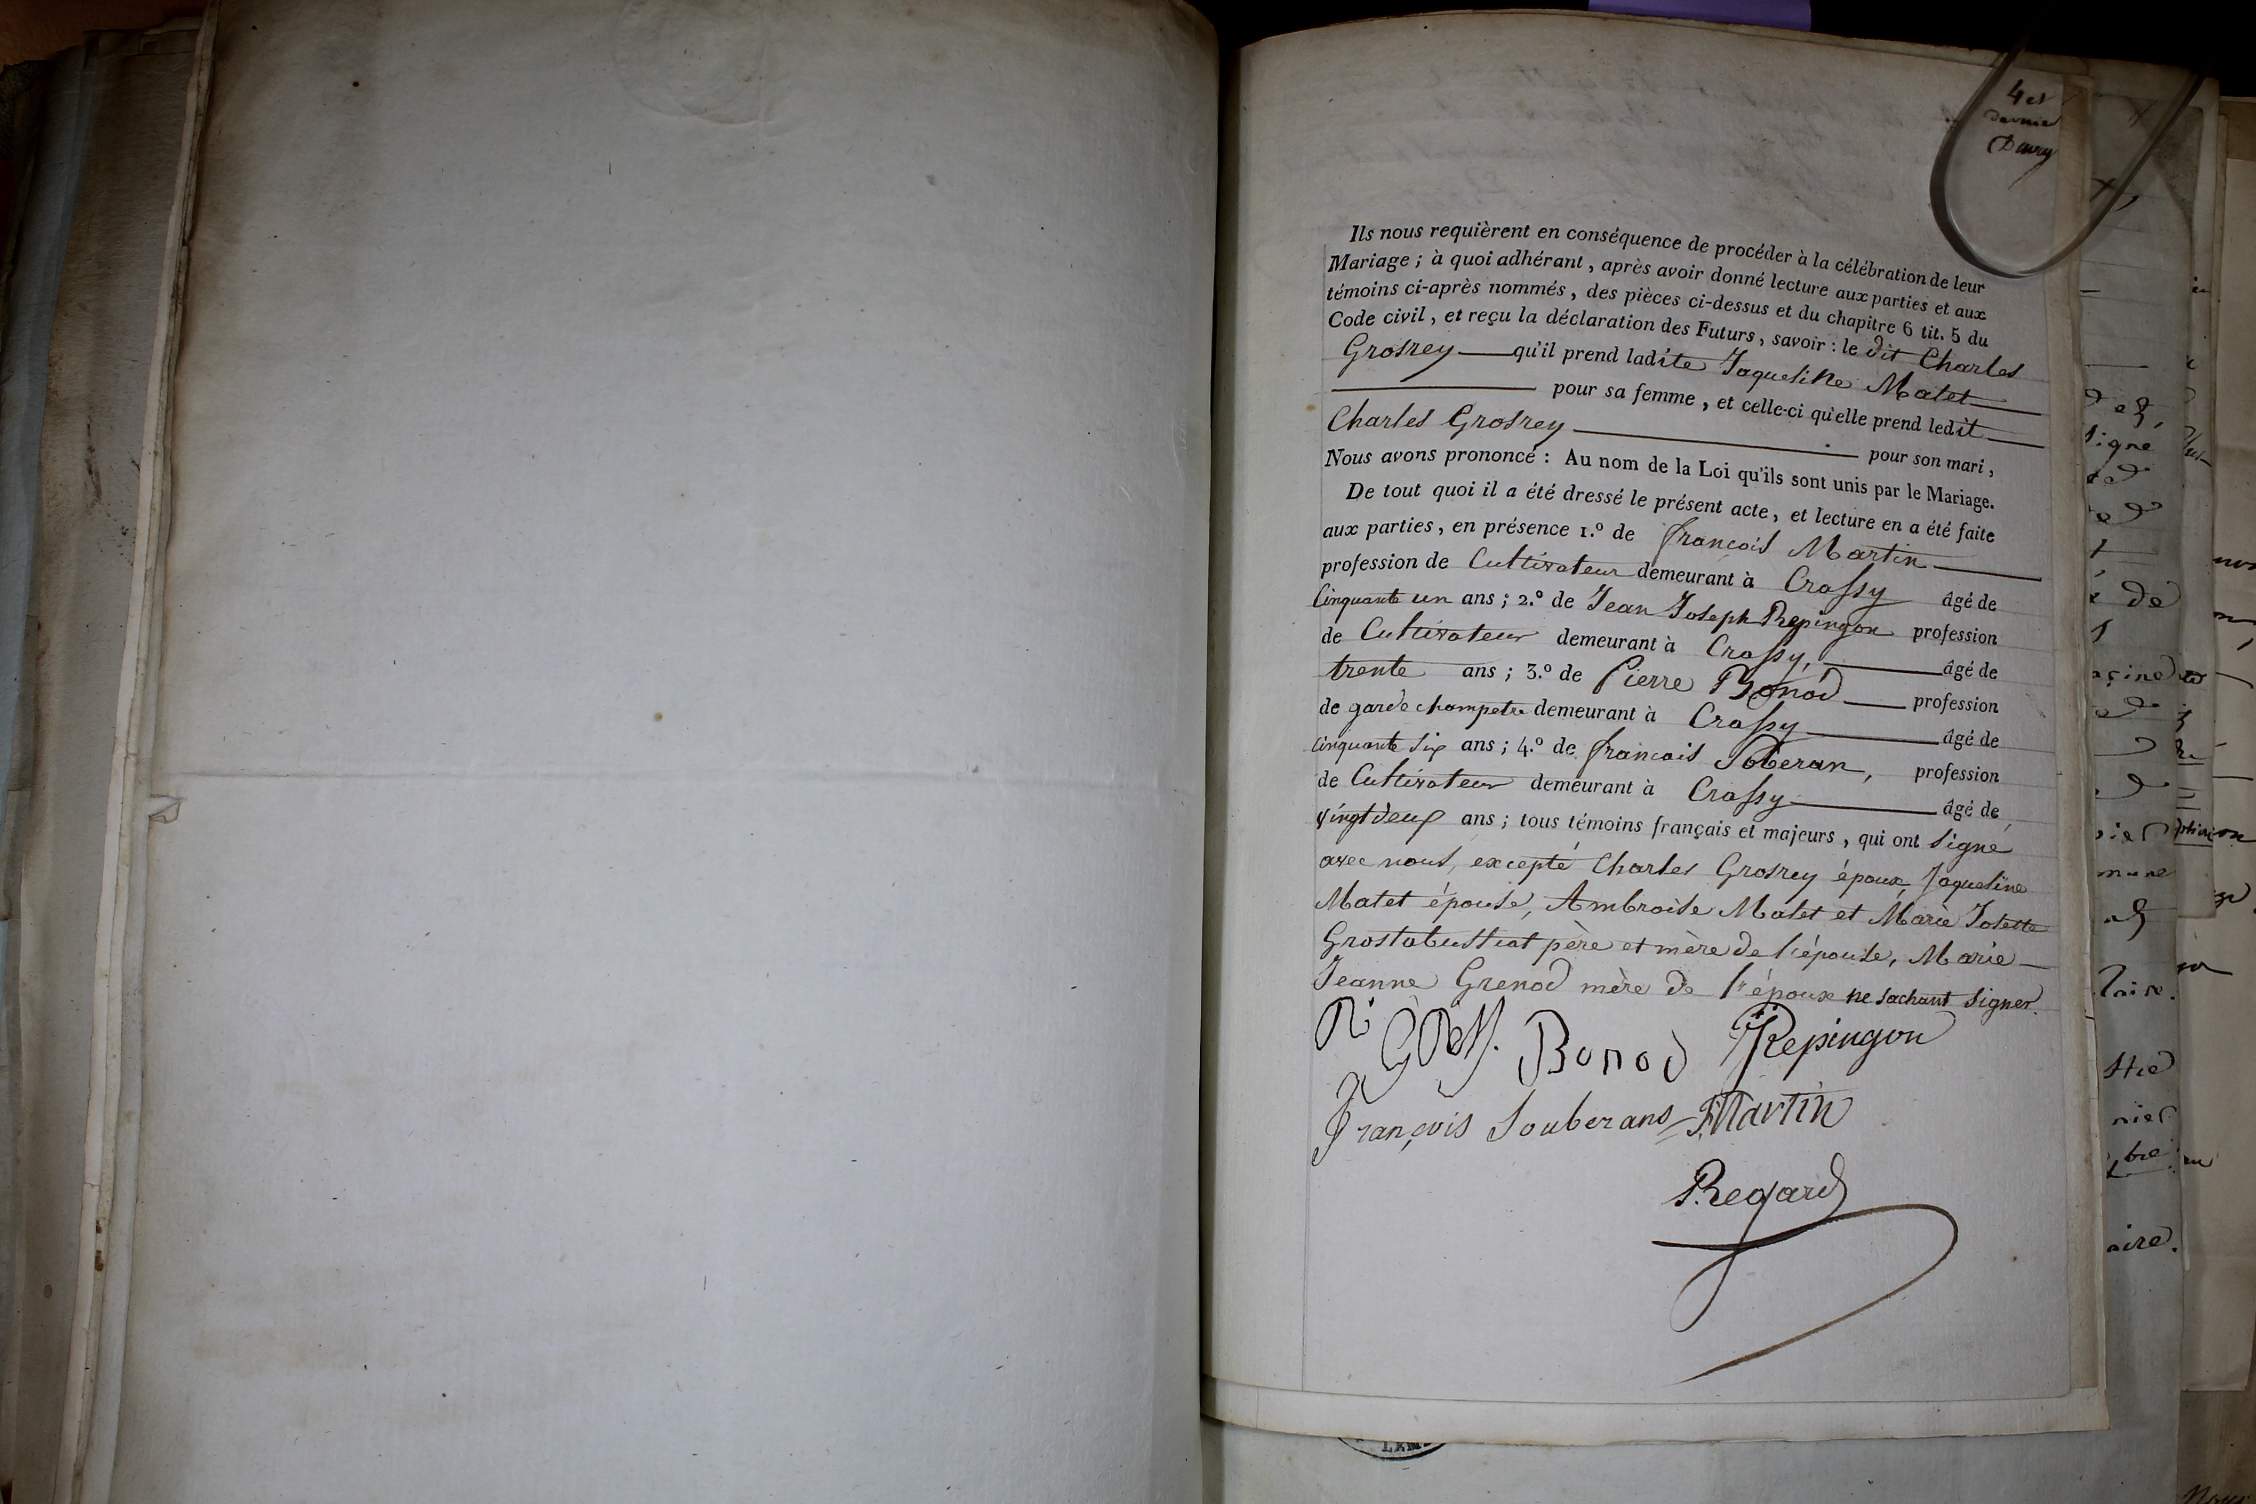 4 et
dernier
Ils nous requièrent en conséquence de procéder à la célébration de leur
Mariage ; à quoi adhérant , après avoir donné lecture aux parties et aux
témoins ci-après nommés , des pièces ci-dessus et du chapitre 6 tit. 5 du
Code civil , et reçu la déclaration des Futurs , savoir : le dit Charles
Grosrey qu'il prend ladite Jaqueline Matet
pour sa femme , et celle-ci qu'elle prend ledit
Charles Grosrey pour son mari ,
Nous avons prononcé : Au nom de la Loi qu'ils sont unis par le Mariage.
De tout quoi il a été dressé le présent acte , et lecture en a été faite
aux parties , en présence 1.º de françois Martin
profession de Cultivateur demeurant à Crassy âgé de
Cinquante un ans ; 2.º de Jean Joseph Repingon profession
de Cultivateur demeurant à Crassy, âgé de
trente ans ; 3.º de Pierre Bonod profession
de garde champetre demeurant à Crassy âgé de
cinquante six ans ; 4.º de francois Soberan, profession
de Cultivateur demeurant à Crassy âgé de
vingt deux ans ; tous témoins français et majeurs , qui ont signé
avec nous, excepté Charles Grosrey époux, Jaqueline
Matet épouse, Ambroise Matet et Marie Josette
père et mère de l'épouse, Marie
Jeanne Grenod mère de l'époux ne sachant signer.
Bonod Repingon
François Souberans F Martin
Regard